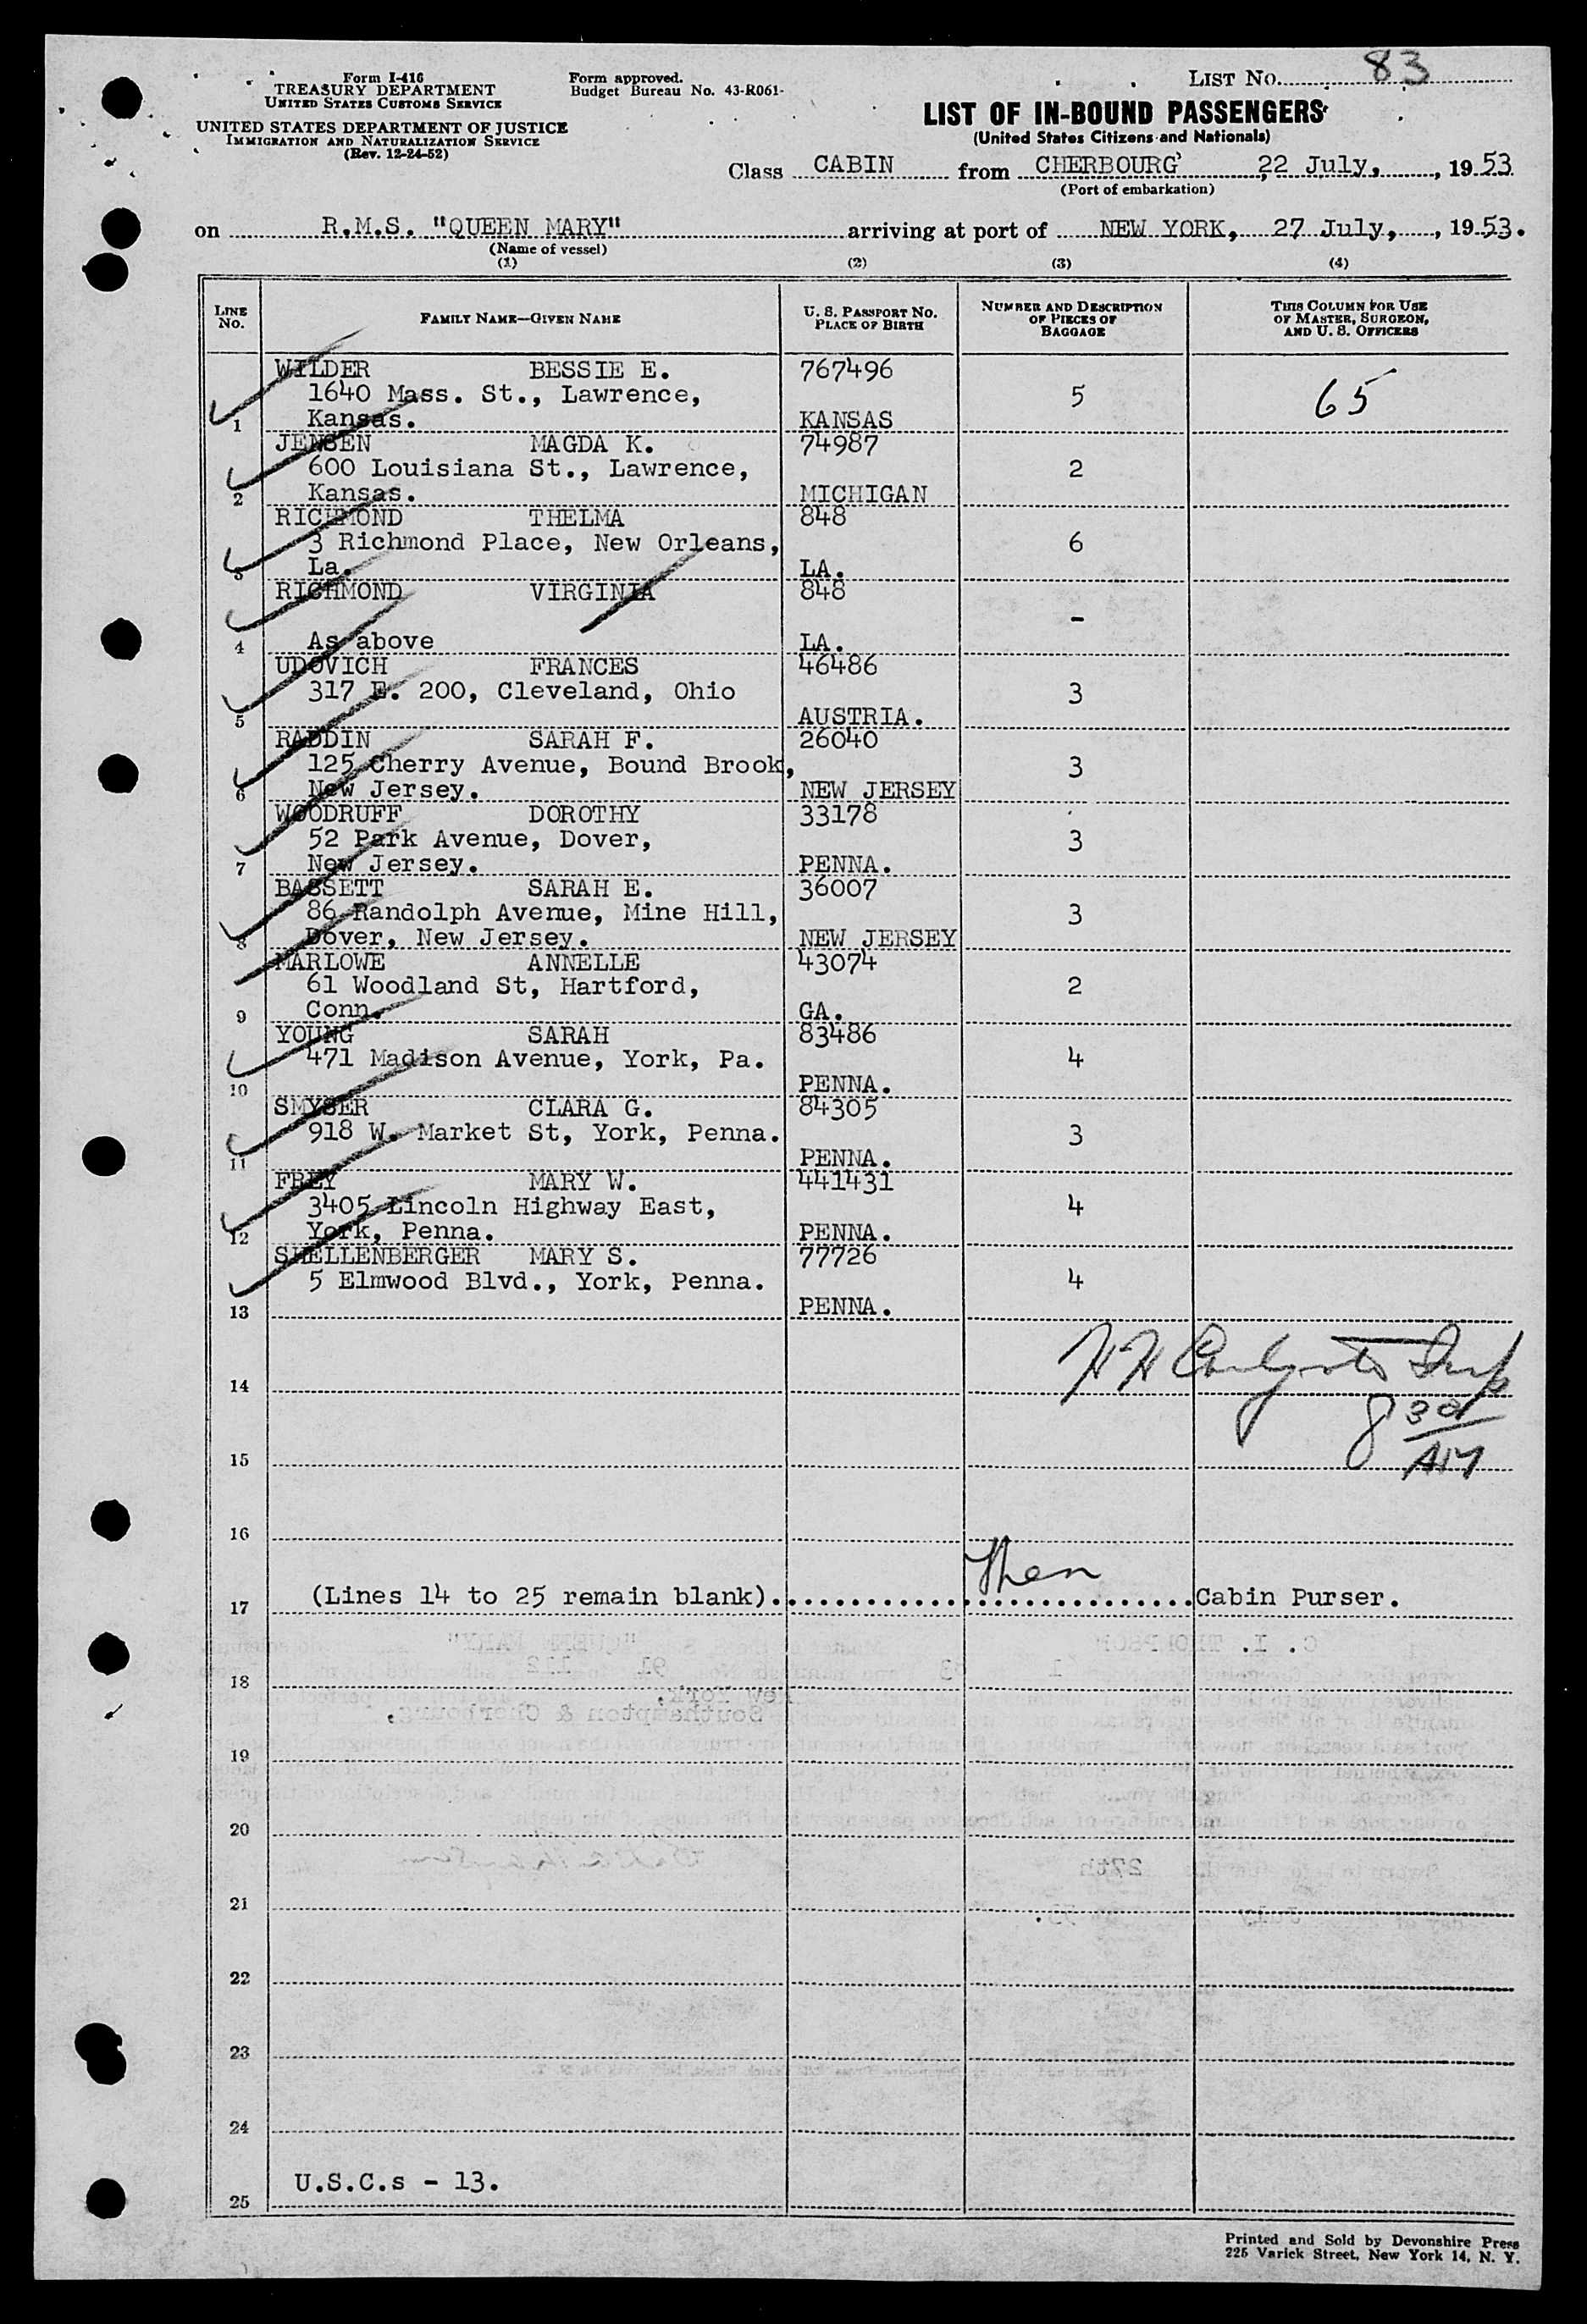 Form I-416
TREASURY DEPARTMENT
UNITED STATES CUSTOMS SERVICE
UNITED STATES DEPARTMENT OF JUSTICE
IMMIGRATION AND NATURALIZATION SERVICE
(Rev. 12-24-52)
Form approved.
Budget Bureau No. 43-R061-
LIST No. 83
LIST OF IN-BOUND PASSENGERS
(United States Citizens and Nationals)
Class CABIN from CHERBOURG, 22 July, , 1953
(Port of embarkation)
on R.M.S. "QUEEN MARY" arriving at port of NEW YORK, 27 July, , 1953.
(Name of vessel)
(1) (2) (3) (4)
LINE No. FAMILY NAME—GIVEN NAME U. S. PASSPORT No. PLACE OF BIRTH NUMBER AND DESCRIPTION OF PIECES OF BAGGAGE THIS COLUMN FOR USE OF MASTER, SURGEON, AND U. S. OFFICERS
WILDER BESSIE E. 767496
1640 Mass. St., Lawrence, 5 65
1 Kansas. KANSAS
JENSEN MAGDA K. 74987
600 Louisiana St., Lawrence, 2
2 Kansas. MICHIGAN
RICHMOND THELMA 848
3 Richmond Place, New Orleans, 6
3 La. LA.
RICHMOND VIRGINIA 848
-
4 As above LA.
UDOVICH FRANCES 46486
317 E. 200, Cleveland, Ohio 3
5 AUSTRIA.
RADDIN SARAH F. 26040
125 Cherry Avenue, Bound Brook, 3
6 New Jersey. NEW JERSEY
WOODRUFF DOROTHY 33178
52 Park Avenue, Dover, 3
7 New Jersey. PENNA.
BASSETT SARAH E. 36007
86 Randolph Avenue, Mine Hill, 3
8 Dover, New Jersey. NEW JERSEY
MARLOWE ANNELLE 43074
61 Woodland St, Hartford, 2
9 Conn. GA.
YOUNG SARAH 83486
471 Madison Avenue, York, Pa. 4
10 PENNA.
SMYSER CLARA G. 84305
918 W. Market St, York, Penna. 3
11 PENNA.
FREY MARY W. 441431
3405 Lincoln Highway East, 4
12 York, Penna. PENNA.
SHELLENBERGER MARY S. 77726
5 Elmwood Blvd., York, Penna. 4
13 PENNA.
14
8 30
15 AM
16
17 (Lines 14 to 25 remain blank)............................Cabin Purser.
18
19
20
21
22
23
24
U.S.C.s - 13.
25
Printed and Sold by Devonshire Press
225 Varick Street, New York 14, N. Y.